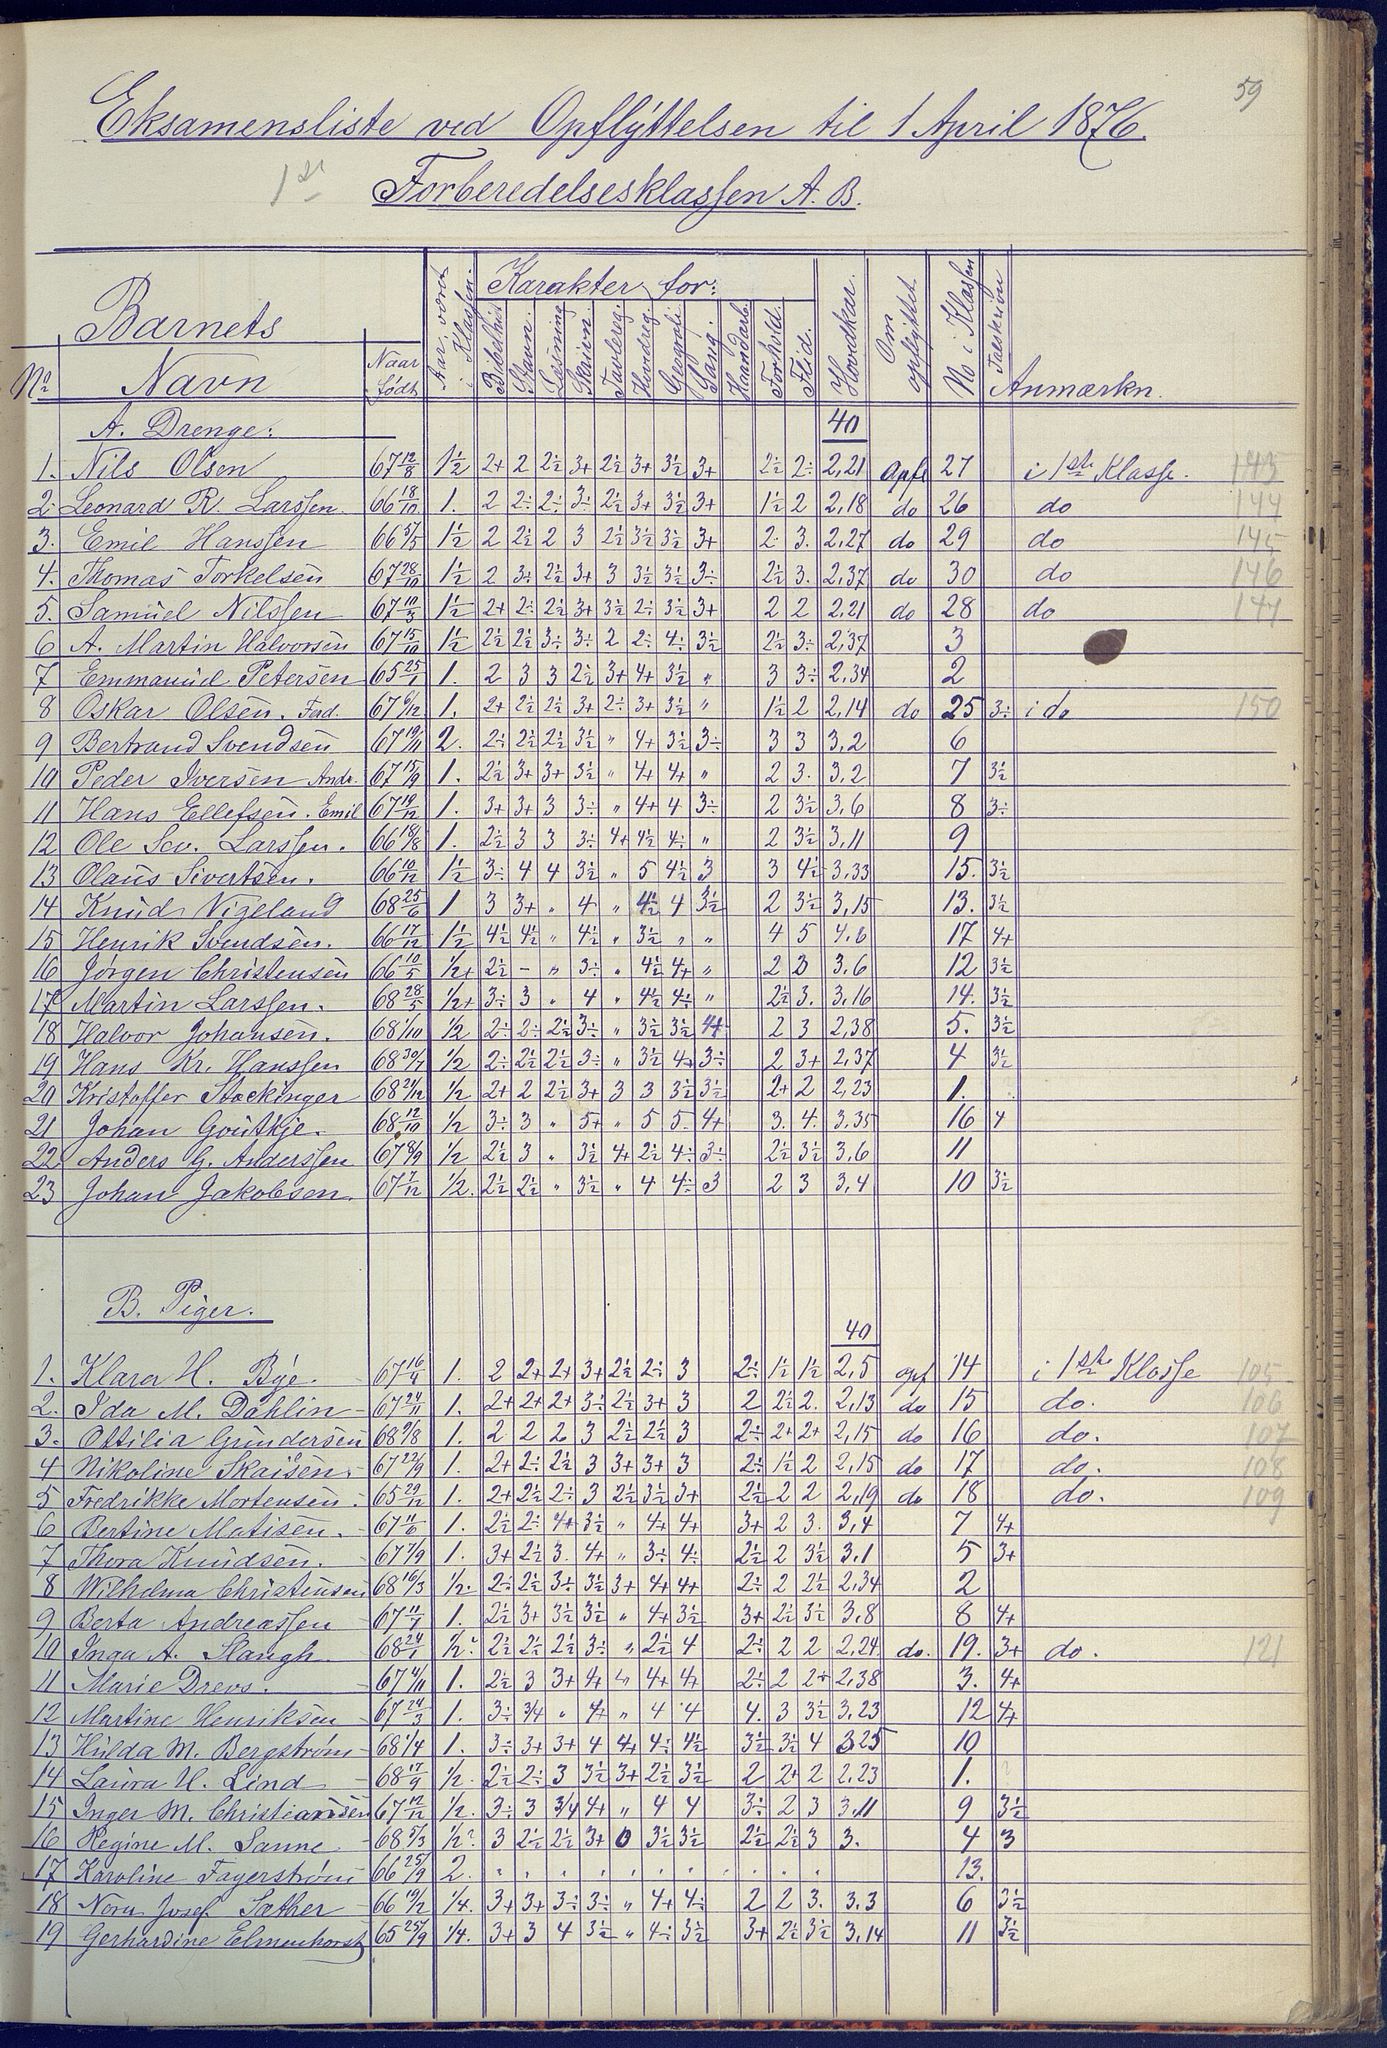 59
Eksamensliste ved Opflyttelsen til 1 April 1876.
1ste Forberedelsesklassen A. B.
No Barnets Navn Naar født Aar været i Klassen. Karakter for: Bibelhis Stavn. Læsning Skrivn. Tavlereg. Hovdreg. Geografi Sang. Haandarb. Forhold. Flid. Hovedkar. Om opflyttet No i Klassen Taleskrivn Anmærkn.
A. Drenge: 40
1. Nils Olsen 67 12/8 1½ 2+ 2 2½ 3+ 2½ 3+ 3½ 3+ 2½ 2÷ 2,21 opfl 27 i 1ste Klasse. 143
2. Leonard R. Larssen 66 18/10 1. 2 2÷ 2÷ 3÷ 2½ 3+ 3½ 3+ 1½ 2 2,18 do 26 do 144
3. Emil Hanssen 66 1½ 2 2½ 2 3 2½ 3½ 3½ 3+ 2. 3. 2,27 do 29 do 145
4. Thomas Torkelsen 67 28/10 1½ 2 3÷ 2½ 3+ 3 3½ 3½ 3÷ 2½ 3. 2,37 do 30 do 146
5. Samuel Nilssen 67 10/3 1½ 2+ 2÷ 2½ 3+ 3½ 2÷ 3½ 3+ 2 2 2,21 do 28 do 147
6 A. Martin Halvorsen 67 15/10 1½ 2½ 2½ 3÷ 3÷ 2 2÷ 4÷ 3½ 2½ 3÷ 2,37 3
7 Emmanuel Petersen 65 25/1 1. 2 3 3 2½ 3+ 4+ 3½ " 3 3÷ 2,34 2
8 Oskar Olsen. Ferd. 67 6/12 1. 2+ 2½ 2½ 3+ 2÷ 3+ 3½ " 1½ 2 2,14 do 25 3÷ i do 150
9 Bertrand Svendsen 67 19/11 2. 2÷ 2½ 2½ 3½ " 4+ 3½ 3÷ 3 3 3,2 6
10 Peder Iversen Andr. 67 15/9 1. 2½ 3+ 3+ 3½ " 4+ 4+ " 2 3. 3,2 7 3½
11 Hans Ellefsen. Emil 67 19/12 1. 3+ 3+ 3 3÷ " 4+ 4 3÷ 2 3½ 3,6 8 3÷
12 Ole Sev. Larssen. 66 18/8 1. 2½ 3 3 3÷ 4+ 4½ 4÷ " 2 3½ 3,11 9
13 Olaus Sivertsen. 66 10/12 1½ 3÷ 4 4 3½ " 5 4½ 3 3 4½ 3,33 15. 3½
14 Knud Vigeland 68 25/6 1 3 3+ " 4 " 4½ 4 3½ 2 3½ 3,15 13. 3½
15 Henrik Svendsen. 66 17/12 1½ 4½ 4½ " 4½ " 3½ " " 4 5 4,6 17 4+
16 Jörgen Christensen 66 10/5 ½+ 2½ - " 3÷ " 4½ 4+ " 2 3 3,6 12 3½
17 Martin Larssen. 68 28/5 ½+ 3÷ 3 " 4 " 4½ 4÷ " 2½ 3. 3,16 14. 3½
18 Halvor Johansen. 68 1/10 ½ 2÷ 2÷ 2½ 3÷ " 3½ 3½ 4+ 2 3 2,38 5. 3½
19 Hans Kr. Hanssen 68 30/7 ½ 2÷ 2½ 2½ 3÷ " 3½ 4+ 3÷ 2 3+ 2,37 4 3½
20 Kristoffer Stockinger 68 21/12 ½ 2+ 2 2½ 3+ 3 3 3½ 3½ 2+ 2 2,23 1.
21 Johan Goutkje. 68 12/10 ½ 3÷ 3 " 5+ " 5 5. 4+ 3. 4. 3,35 16 4
22 Anders G. Anderssen 67 8/9 ½ 2½ 3 " 3½ 4+ 2½ 4÷ 3÷ 2½ 3½ 3,6 11
23 Johan Jakobsen. 67 7/12 ½. 2½ 2½ " 3½ " 4 4÷ 3 2 3 3,4 10 3½
B. Piger. 40
1. Klara H. Bÿe. 67 16/4 1. 2 2+ 2+ 3+ 2½ 2÷ 3 2÷ 1½ 1½ 2,5 opf 14 i 1ste Klasse 105
2. Ida M. Dahlin 67 24/11 1. 2+ 2+ 2+ 3÷ 2½ 3+ 3 2 2½ 2. 2,13 do 15 do. 106
3. Ottilia Gundersen 68 9/8 1. 2 2 2 3 2½ 2½ 3 2÷ 2+ 2+ 2,15 do 16 do. 107
4 Nikoline Skaisen. 67 22/9 1. 2+ 2÷ 2½ 3 3+ 3+ 3 2÷ 1½ 2 2,15 do 17 do. 108
5 Fredrikke Mortensen. 65 29/12 1. 2+ 2½ 2÷ 3 2½ 3½ 3+ 2½ 2 2 2,19 do 18 do. 109
6 Bertine Matisen. 67 11/6 1. 2½ 2÷ 4+ 3½ " 4+ 4+ 3+ 2 3. 3,4 7 4+
7 Thora Knudsen. 67 7/9 1. 3+ 2½ 3. 4+ " 3÷ 4÷ 2½ 2 3½ 3,1 5 3+
8 Wilhelma Christensen 68 16/3 ½. 2÷ 2½ 3÷ 3½ 3+ 4+ 4+ 2÷ 2 2½ 2,34 2
9 Berta Andreassen 67 11/7 1. 2½ 3+ 3½ 3½ " 4+ 3½ 3+ 2½ 3½ 3,8 8 4+
10 Inga A. Slaugh. 68 24/1 ½? 2½ 2½ 2½ 3÷ " 2½ 4 2÷ 2 2 2,24 do. 19. 3+ do. 121
11 Marie Drevs. 67 4/11 1. 2½ 3 3+ 4+ " 4+ 4+ 2÷ 2 2+ 2,38 3. 4+
12 Martine Henriksen 67 24/3 1. 3÷ 3/4 " 4+ " 4 4 4. 3 3½ 3,23 12 4+
13 Hilda M. Bergstrøm 68 1/4 1. 3÷ 3+ 3+ 4 4+ 4÷ 4½ 3½ 3½ 4 3,25 10
14 Laura H. Lind 68 17/9 ½. 2½ 2÷ 3 3½ 3+ 2½ 3½ 2 2+ 2 2,23 1.
15 Inger M. Christiansen 67 12/12 ½. 3÷ 3 3/4 4+ " 4 4 3÷ 2 3 3,11 9 3½
16 Regine M. Sanne 68 5/3 ½? 3 2½ 2½ 3+ 0 3½ 3½ 2½ 2½ 3 3. 4 3
17 Karoline Fagerström 66 25/9 2. " " " " " " " " " " 13.
18 Nora Josef. Sæther 66 19/2 ¼. 3+ 3+ 3÷ 3÷ " 4+ 4÷ 2 2 3. 3,3 6 3½
19 Gerhardine Elmenhorst 65 25/9 ¼. 3+ 3 4 3½ " 4÷ 3½ 3+ 2½ 3½ 3,14 11 3½